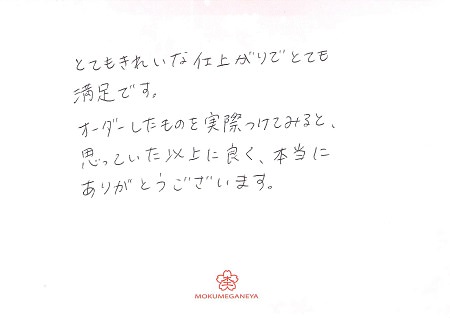 とてもきれいな仕上がりでとても
満足です。
オーダーしたものを実際つけてみると、
思っていた以上に良く、本当に
ありがとうございます。
MOKUMEGANEYA